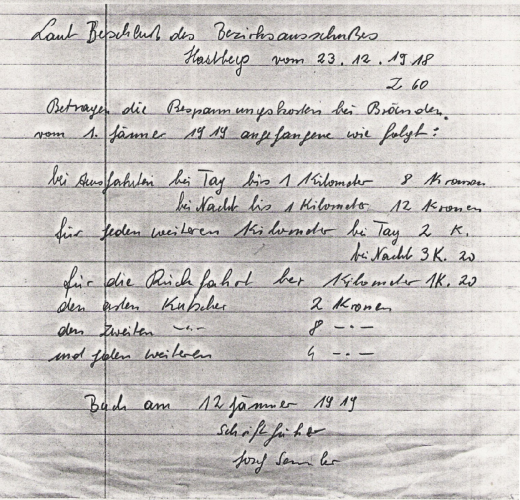 Laut Beschluß des Bezirksausschußes
Hartberg vom 23.12.1918
Z 60
Betragen die Bespannungskosten bei Bränden.
vom 1. Jänner 1919 angefangene wie folgt:
bei Ausfahrten bei Tag bis 1 Kilometer 8 Kronen
bei Nacht bis 1 Kilometer 12 Kronen
für jeden weiteren Kilometer bei Tag 2 K.
bei Nacht 3 K. 20
für die Rückfahrt bei 1 Kilometer 1 K. 20
den ersten Kutscher 2 Kronen
den zweiten -"- 8 -"-
und jeden weiteren 4 -"-
Buch am 12 Jänner 1919
Schriftführer
Josef